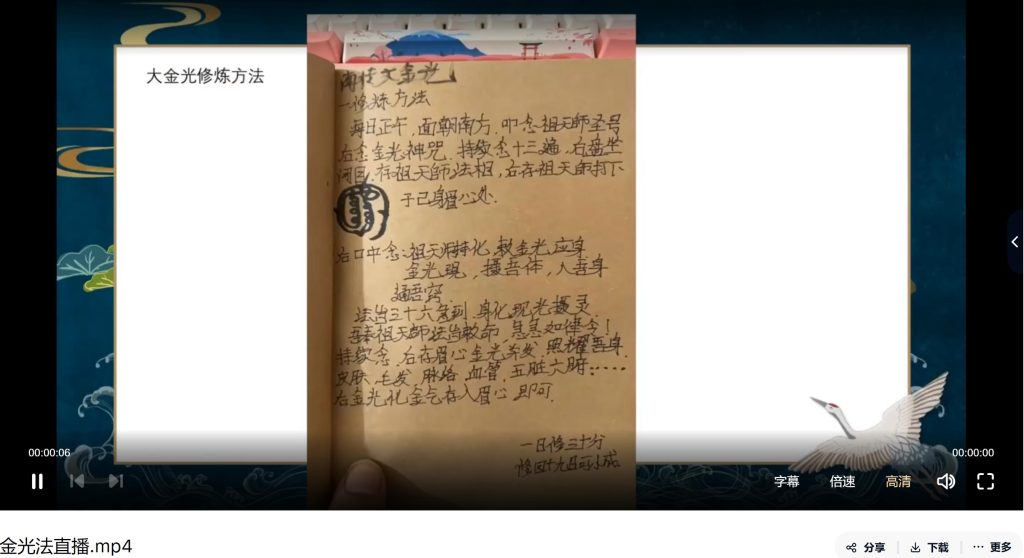 大金光修炼方法
一修炼方法
每日正午,面朝南方,叩念祖天師圣号
后念金光神咒.持续念十三遍.后盘坐
闭目,存祖天師法相,后存祖天師打下
于己身眉心处.
后口中念:祖天師持化,敕金光应身
金光现,摄吾体,入吾身
通吾窍.
法出三十六急到.身化现光摄灵.
吾奉祖天師法旨敕命,急急如律令!
持续念,后存眉心金光并发,照耀吾身.
皮肤,毛发,脉络,血管,五脏六腑……
后金光化金气存入眉心即可.
一日修三十分
修四十九日可小成
00:00:06
00:00:00
字幕
倍速
高清
金光法直播.mp4
分享
下载
更多